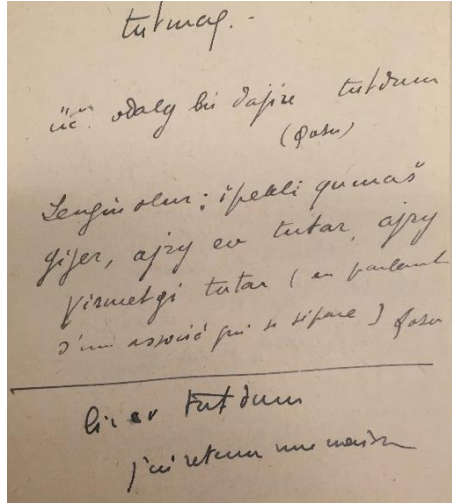 tutmaq.-
üč odaly bir dajire tutdum
(Qosu)
Zengin olur; ipekli qumaš
gijer, ajry ev tutar, ajry
xizmetgi tutar (en parlant
d'un associé qui se sépare) Qosu
bir ev tutdum
j'ai retenu une maison